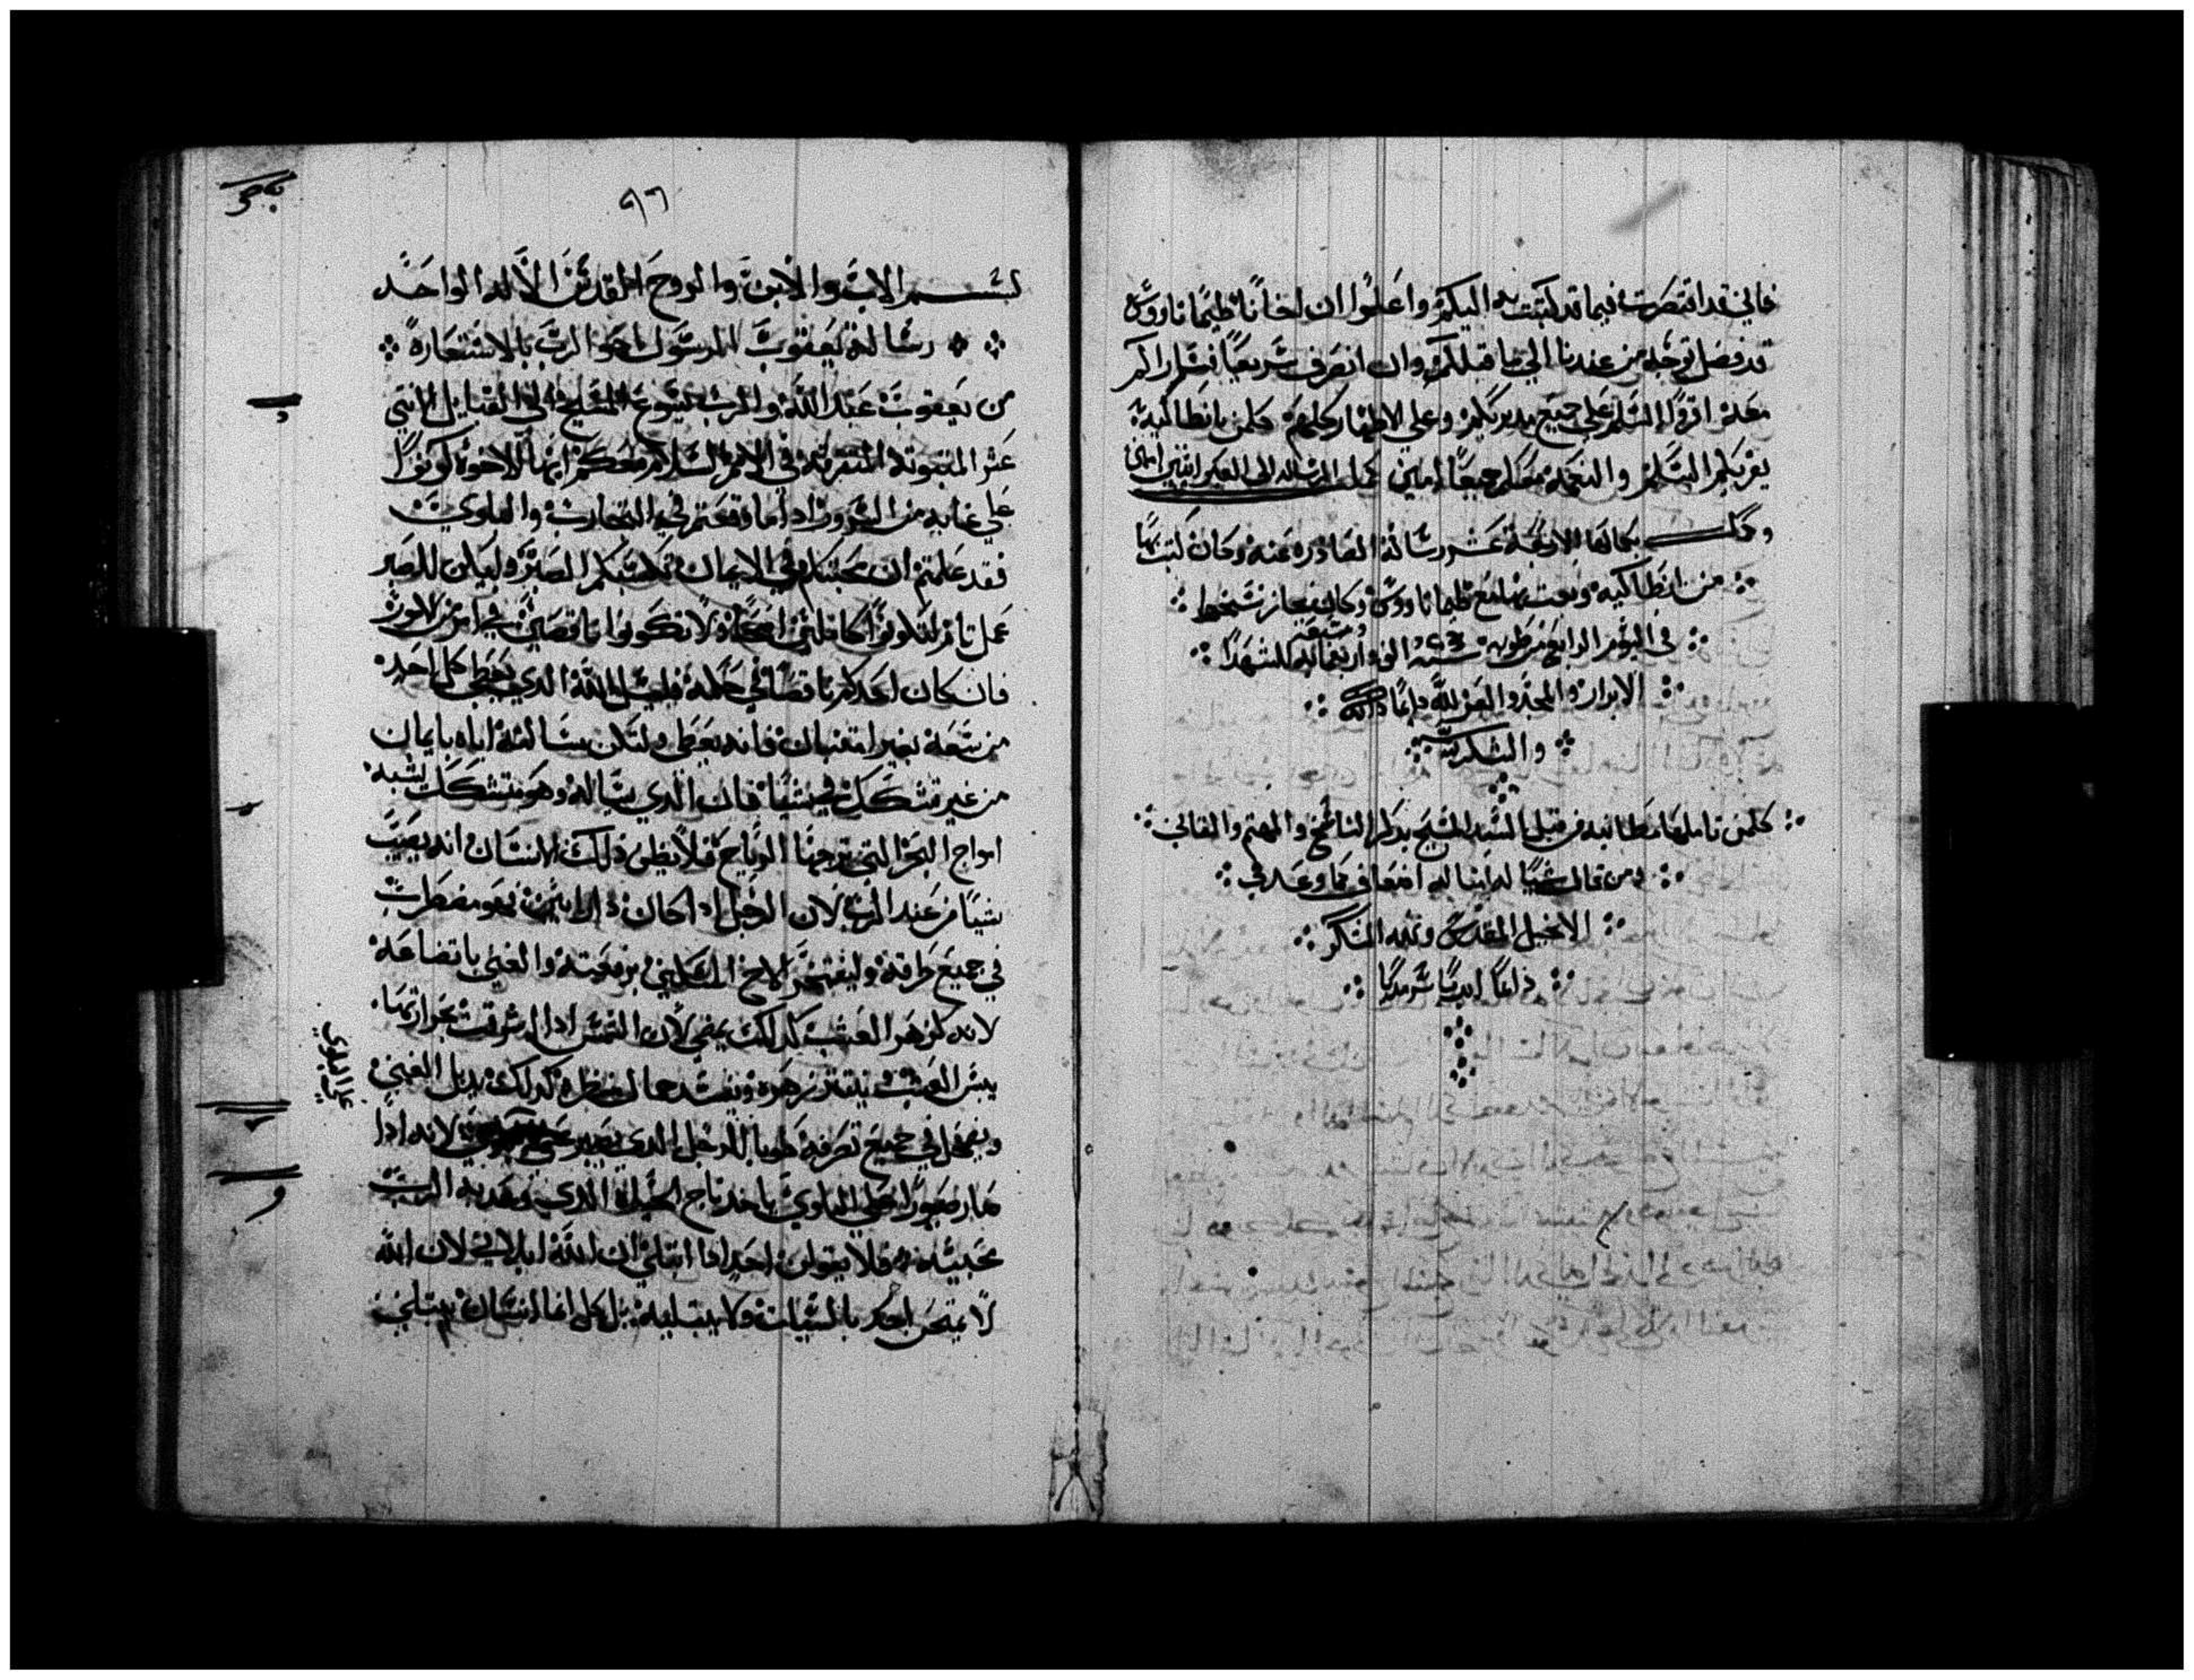 فاني قد اقتصرت فيما قد كتبت به اليكم واعلموا ان لخانا طيماتاووس
قد فصل توجه من عندنا الي ما قبلكم وان انصرف سريعا فسار اكم
معه اقروا السلم علي جميع مدبريكم وعلي الاطهار كلهم كلمن بانطاكية
يقريكم السلم والنعمة معكم جميعا امين كمل الرسالة الي العبرانيين
وكمل بكمالها الاربعة عشر رسالة الصادره عنه وكان كتبها
من انطاكيه وبعت بها مع طيماتاووس وكان نجاز نسخها
في اليوم الرابع من طوبه سنة الف واربعمايه للشهدا
الابرار والمجد والعز لله دايما
والشكر
كلمن تاملها فطانيه من قبل السيد المسيح يذكر الناسخ والمهتم والقاني
ومن قال شيا له امثاله اضعاف كما وعد في
الانجيل المقدس ولله الشكر
دايما ابديا سرمديا
٩٦
بسم الاب والابن والروح القدس الاله الواحد
رسالة يعقوب الرسول اخو الرب بالاستعارة
من يعقوب عبد الله والرب يسوع المسيح الي القبايل الاثني
عشر المتبوتة المتفرقة في الامم السلام معكم ايها الاخوة كونوا
علي غاية من السرور اذا ما وقعتم في التجارب والبلاوي
فقد علمتم ان محنتكم في الايمان تكسبكم الصبر وليكن للصبر
عمل تام لتكونوا كاملين اصحا ولا تكونوا ناقصين في امر من الامور
فان كان احدكم ناقصا في حكمة فليسل الله الذي يعطي كل احد
من سعة بغير امتنان فانه يعطي ولتكن مسالته اياه بايمان
من غير تشكك في شيا فان الذي يساله وهو متشكك يشبه
امواج البحر التي تزجها الرياح فلا يظن ذلك الانسان انه يصيب
شيا من عند الرب لان الرجل اذا كان ذا رايين فهو مضطرب
في جميع طرقه وليفتخر الاخ المسكين برفعته والغني باتضاعه
لانه كزهر العشب كذلك يمضي لان الشمس اذا اشرقت بحرارتها
يبس العشب ينتثر زهره وتفسد جمال منظره كذلك يذبل الغني
ويضمحل في جميع تصرفه طوبا للرجل الذي يصبر لانه اذا
علي البلاوي
صار صبورا علي البلاوي ياخذ تاج الحياة الذي وعد به الرب
محبيه فلا يقولن احد اذا ابتلي ان الله ابلاني لان الله
لا يمتحن احد بالسيات ولا يبتليه بل كل انسان يبتلي